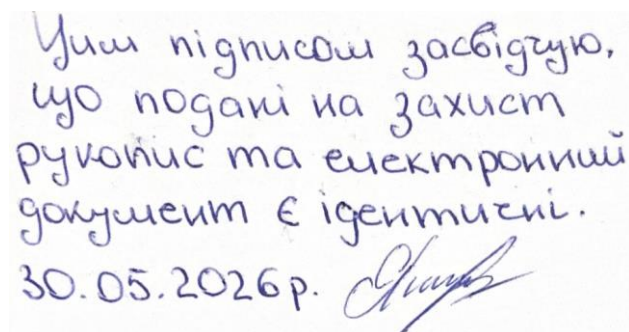 Цим підписом засвідчую,
що подані на захист
рукопис та електронний
документ є ідентичні.
30.05.2026р.